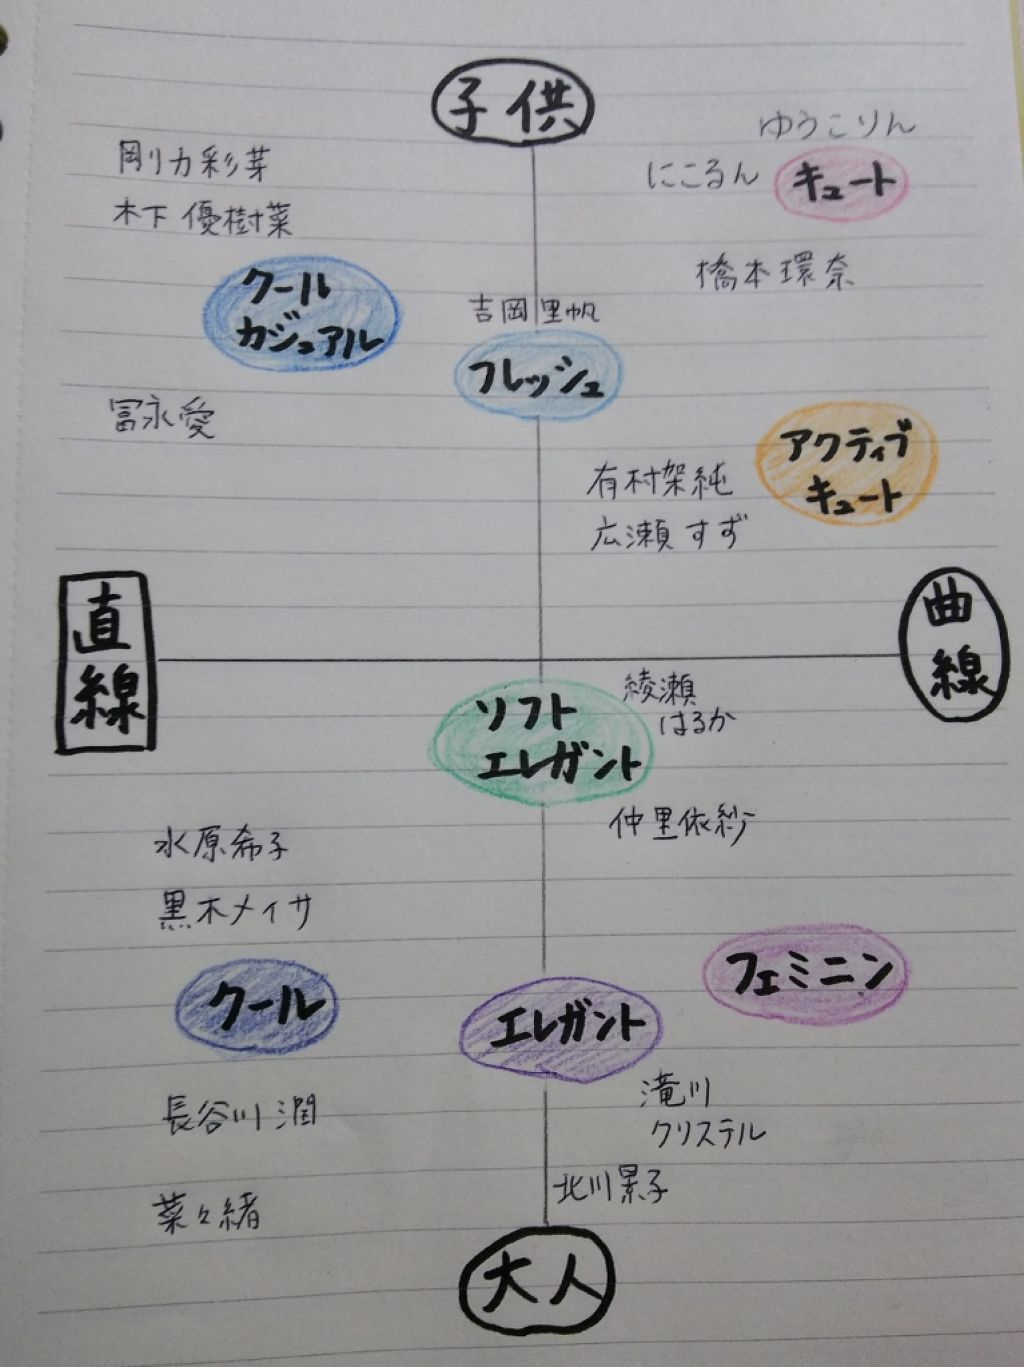 子供
ゆうこりん
剛力彩芽
にこるん
キュート
木下優樹菜
橋本環奈
クール
カジュアル
吉岡里帆
フレッシュ
冨永愛
アクティブ
キュート
有村架純
広瀬すず
直線
曲線
綾瀬
はるか
ソフト
エレガント
仲里依紗
水原希子
黒木メイサ
フェミニン
クール
エレガント
滝川
クリステル
長谷川潤
北川景子
菜々緒
大人